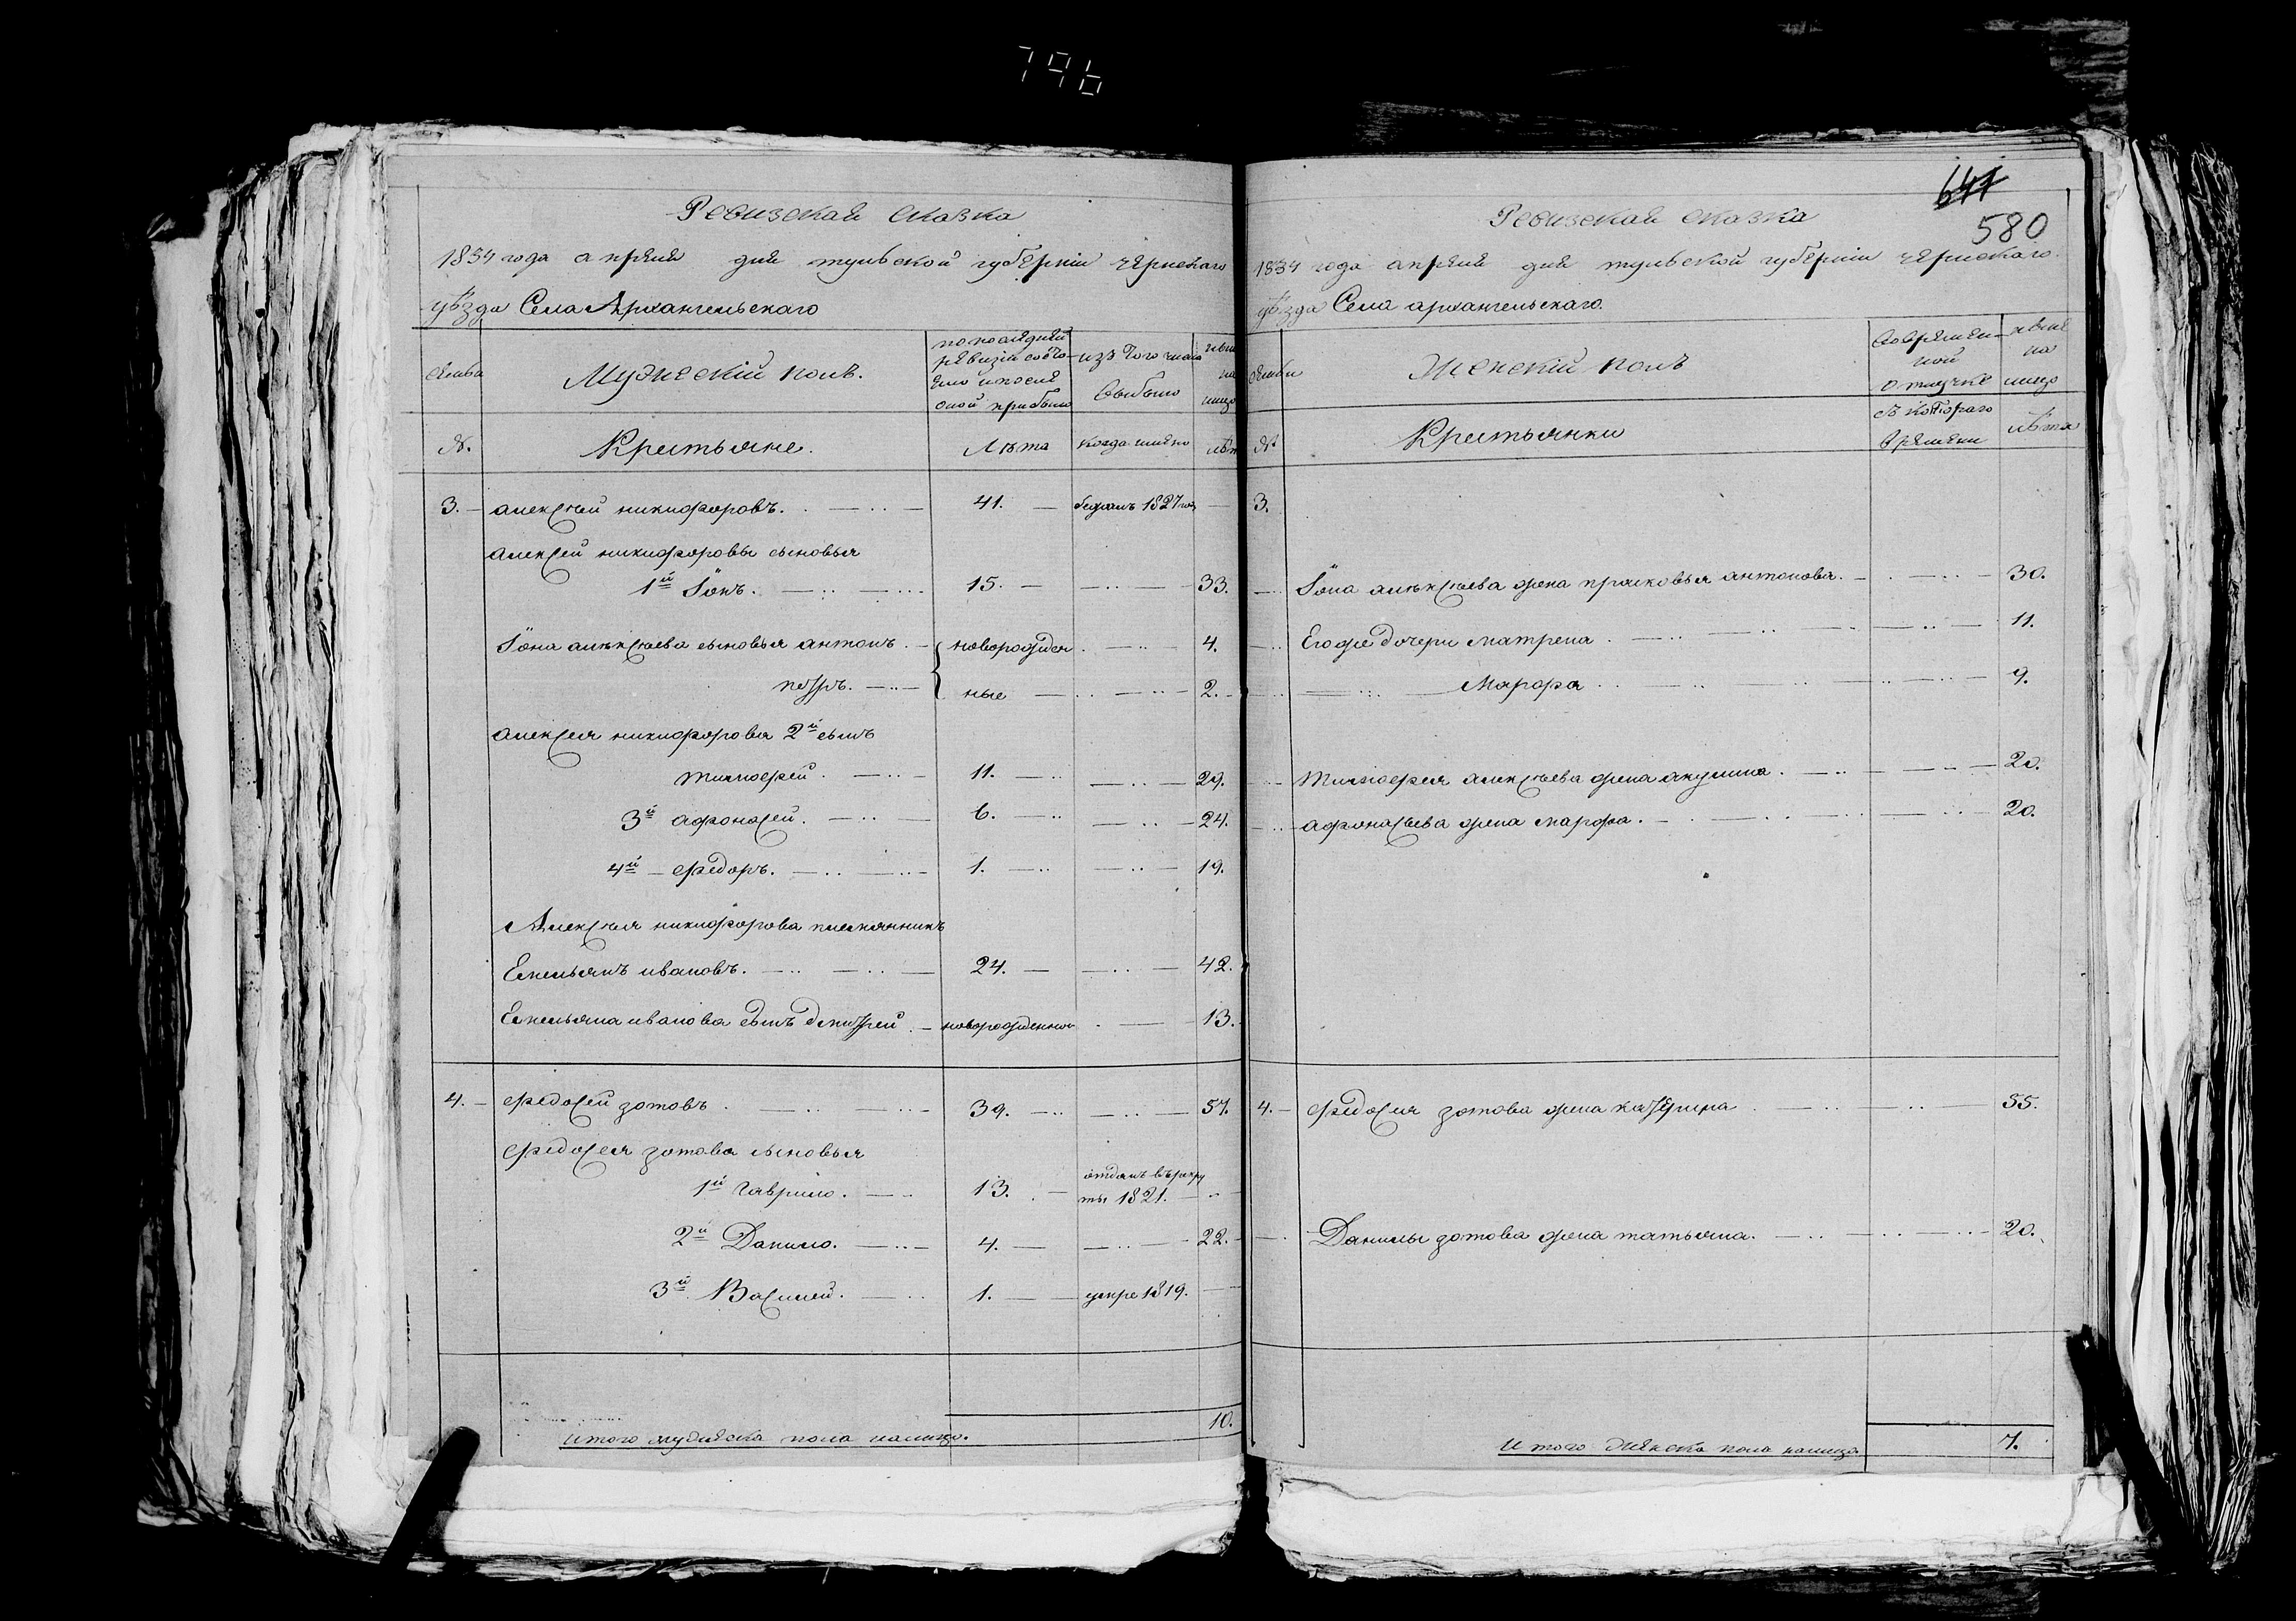 796
Ревизская сказка
1834 года апреля дня тульской губернии чернскаго
уѣзда Села Архангельскаго
семьи
Мужескій полъ.
по последней
ревизіи состо-
яло и после
оной прибыло
изъ того числа
выбыло
ныне
на
лицо
№.
Крестьяне.
Лѣта
когда имено
лѣт
3. алексѣй никифоровъ. 41. бежалъ 1827 год
алексей никифоровы сыновья
1й Іонъ. 15. 33.
Іона алексѣева сыновья антонъ. новорожден 4.
петръ. ные 2.
алексея никифорова 2й сынъ
тимофей. 11. 29.
3й афонасей. 6. 24.
4й федоръ. 1. 19.
Алексѣя никифорова племянникъ
Емельянъ ивановъ. 24. 42.
Емельяна иванова сынъ дмитрей новорожденной 13.
4. федосей зотовъ. 39. 57.
федосея зотова сыновья
1й гаврило. 13. отданъ въ рекру
ты 1821.
2й Данило. 4. 22.
3й Василей. 1. умре 1819.
итого мужеска пола налицо. 10.
641
580
Ревизская сказка
1834 года апреля дня тульской губернии чернскаго
уѣзда Села архангельскаго.
семьи
Женскій полъ
Во времен-
ной
отлучке
ныне
на
лицо
№
Крестьянки
съ котораго
времени
лѣта
3.
Іона алексѣева жена прасковья антонова. 30.
Его же дочери матрена. 11.
Марфа. 9.
тимофея алексѣева жена акулина. 20.
афонасьева жена марфа. 20.
4. федосея зотова жена катерина 55.
Данилы зотова жена татьяна. 20.
Итого женска пола налицо 7.